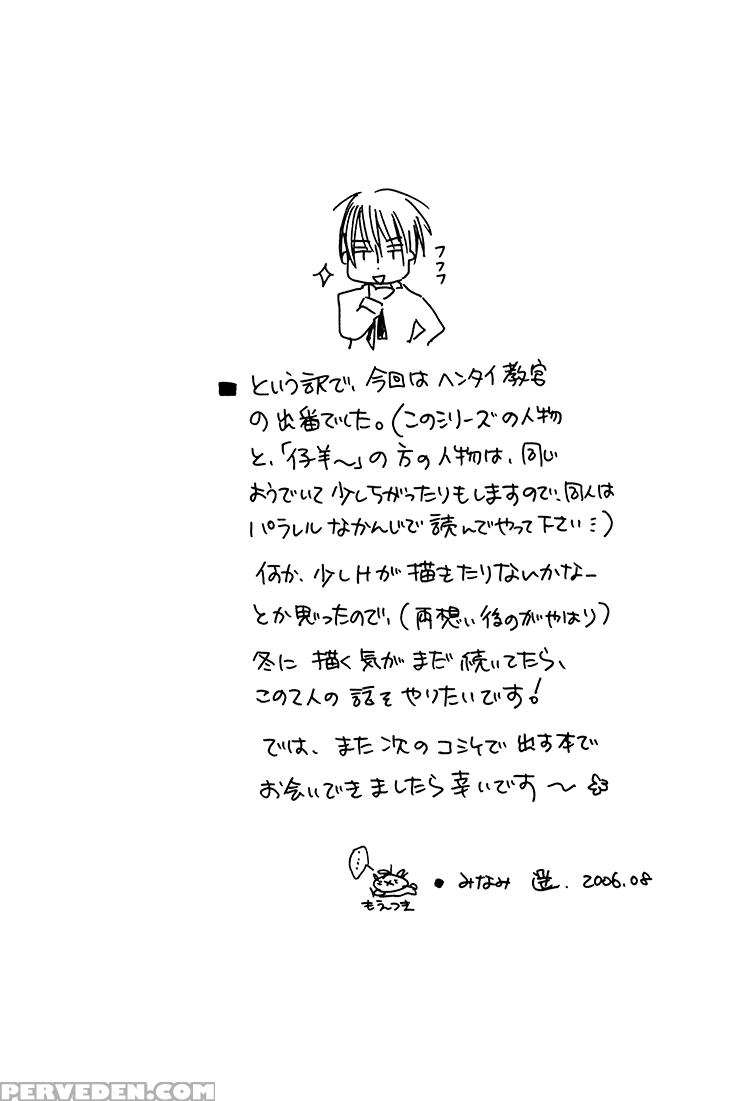 フフフ
■ という訳で、今回はヘンタイ教官
の出番でした。(このシリーズの人物
と、「仔羊〜」の方の人物は、同じ
ようでいて少しちがったりもしますので、同人は
パラレルなかんじで読んでやって下さい…)
何か、少しHが描きたりないかなー
とか思ったので、(両想い後のがやはり)
冬に描く気がまだ続いてたら、
この2人の話をやりたいです!
では、また次のコミケで出す本で
お会いできましたら幸いです〜
......
もえつき
● みなみ 遥. 2006.08
PERVEDEN.COM